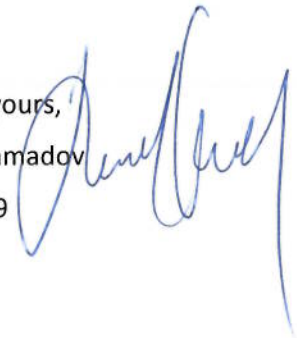 yours,
amadov
9